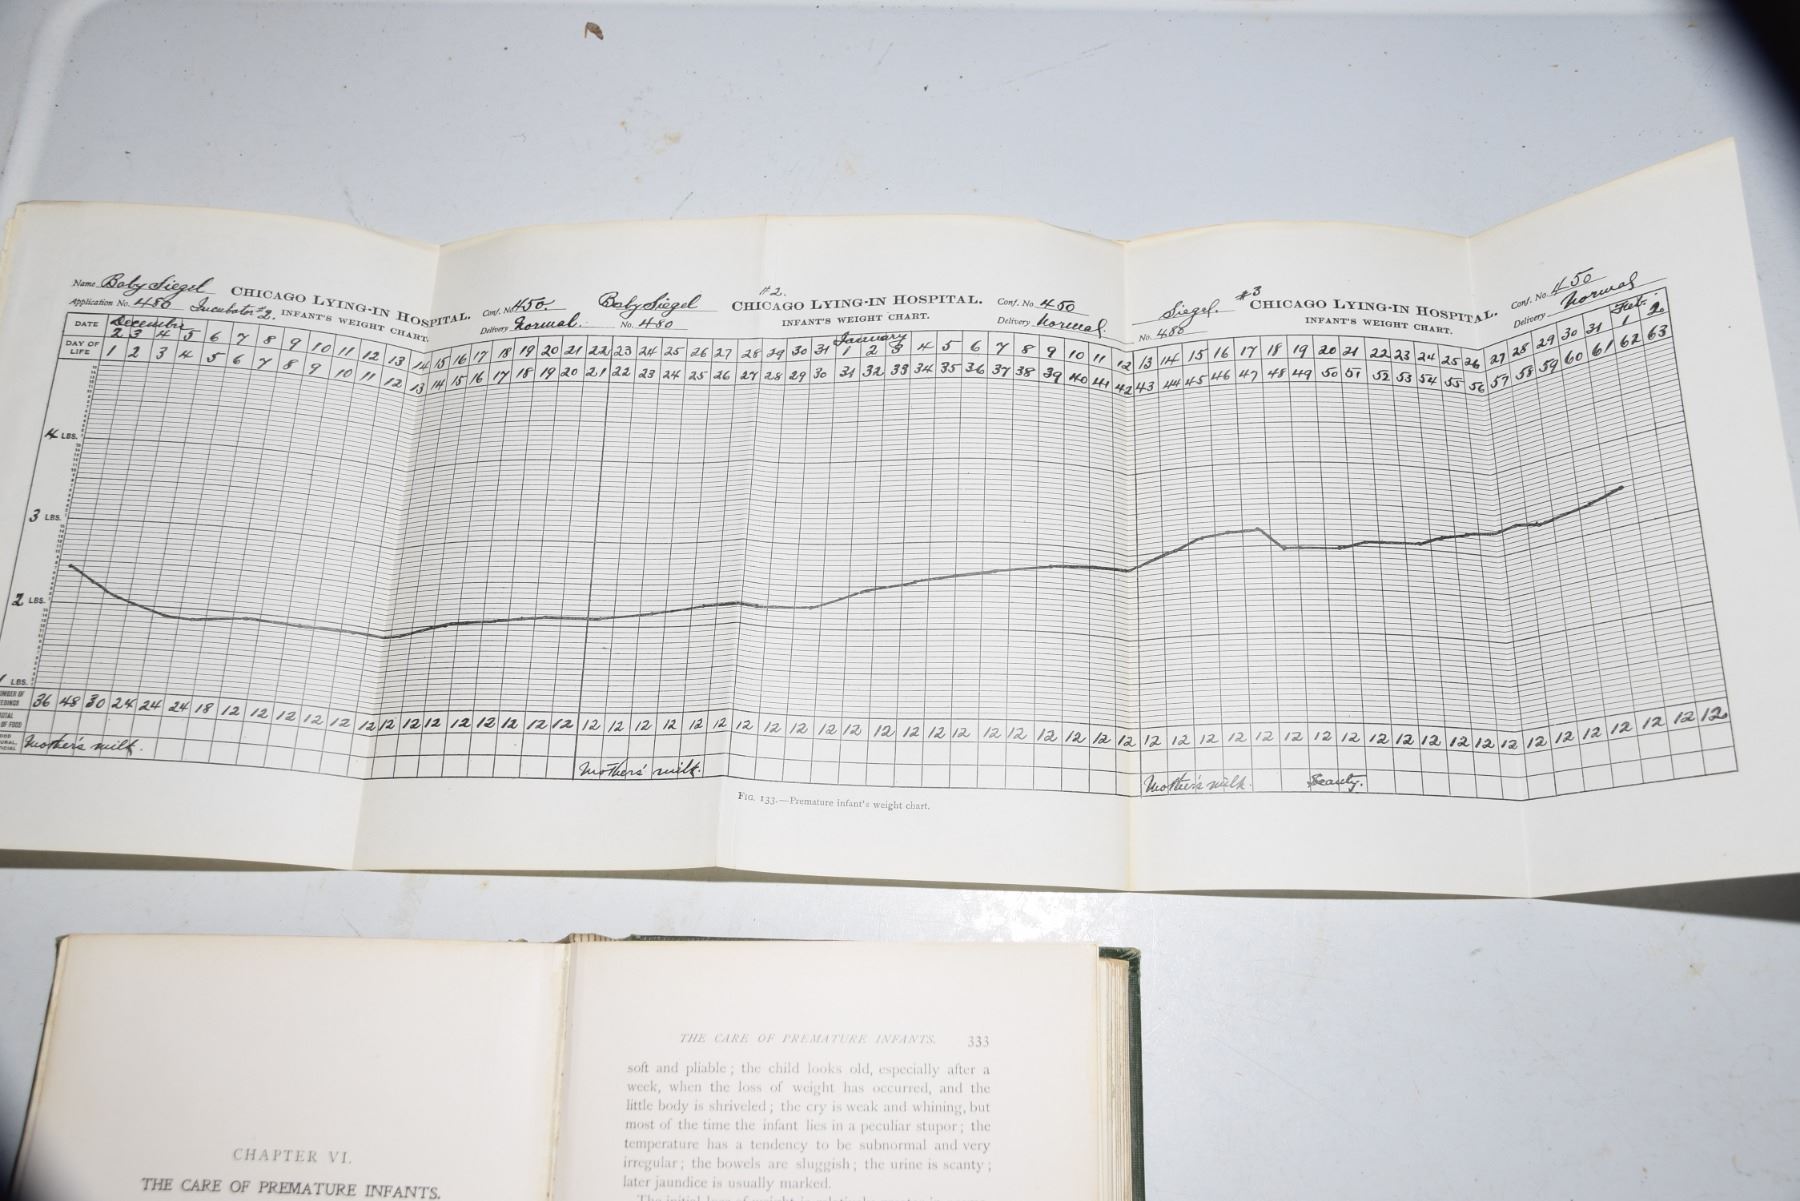 Name Baby Siegel CHICAGO LYING-IN HOSPITAL. Conf. No. 450.
Application No. 480 Incubator #2. INFANT'S WEIGHT CHART. Delivery Normal.
Baby Siegel #2. CHICAGO LYING-IN HOSPITAL. Conf. No. 450
No. 480 INFANT'S WEIGHT CHART. Delivery Normal.
Siegel. #3 CHICAGO LYING-IN HOSPITAL. Conf. No. 450
No. 480 INFANT'S WEIGHT CHART. Delivery Normal
December January Feb.
DATE 2 3 4 5 6 7 8 9 10 11 12 13 14 15 16 17 18 19 20 21 22 23 24 25 26 27 28 29 30 31 1 2 3 4 5 6 7 8 9 10 11 12 13 14 15 16 17 18 19 20 21 22 23 24 25 26 27 28 29 30 31 1 2
DAY OF LIFE 1 2 3 4 5 6 7 8 9 10 11 12 13 14 15 16 17 18 19 20 21 22 23 24 25 26 27 28 29 30 31 32 33 34 35 36 37 38 39 40 41 42 43 44 45 46 47 48 49 50 51 52 53 54 55 56 57 58 59 60 61 62 63
4 LBS.
3 LBS.
2 LBS.
LBS.
36 48 30 24 24 24 18 12 12 12 12 12 12 12 12 12 12 12 12 12 12 12 12 12 12 12 12 12 12 12 12 12 12 12 12 12 12 12 12 12 12 12 12 12 12 12 12 12 12 12 12 12 12 12 12 12 12 12 12 12 12 12 12
OF FOOD
Mother's milk. Mothers' milk. Mother's milk. Scanty.
FIG. 133.—Premature infant's weight chart.
CHAPTER VI.
THE CARE OF PREMATURE INFANTS.
THE CARE OF PREMATURE INFANTS. 333
soft and pliable; the child looks old, especially after a
week, when the loss of weight has occurred, and the
little body is shriveled; the cry is weak and whining, but
most of the time the infant lies in a peculiar stupor; the
temperature has a tendency to be subnormal and very
irregular; the bowels are sluggish; the urine is scanty;
later jaundice is usually marked.